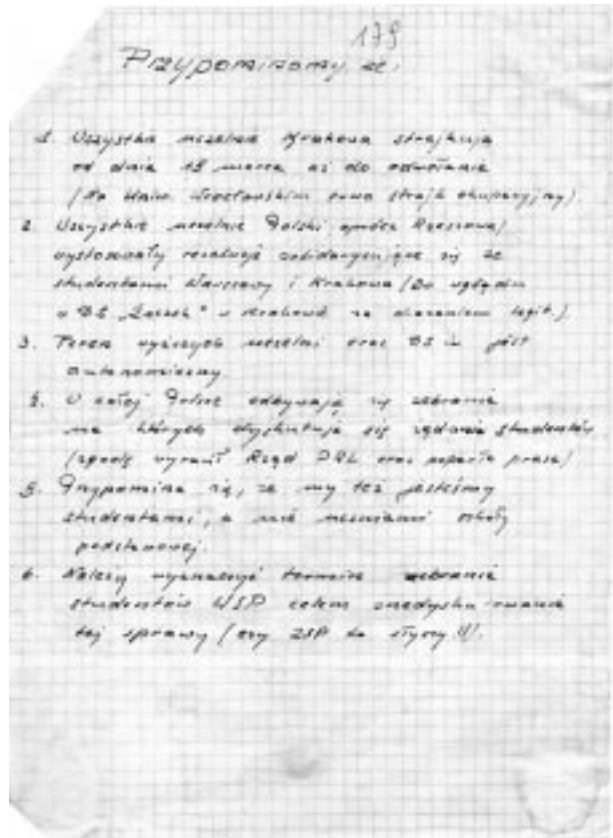 179
Przypominamy, że:
1. Wszystkie uczelnie Krakowa strajkują
od dnia 15 marca aż do odwołania
(Na Uniw. Wrocławskim trwa strajk okupacyjny).
2. Wszystkie uczelnie Polski oprócz Rzeszowa)
wystosowały rezolucje solidaryzujące się ze
studentami Warszawy i Krakowa (Do wglądu
w DS "Żaczek" w Krakowie za okazaniem legit.)
3. Teren wyższych uczelni oraz DS jest
autonomiczny.
4. W całej Polsce odbywają się zebrania
na których dyskutuje się żądania studentów
(zgodę wyraził Rząd PRL oraz poparła prasa)
5. Przypomina się, że my też jesteśmy
studentami, a nie uczniami szkoły
podstawowej.
6. Należy wyznaczyć termin zebrania
studentów WSP celem przedyskutowania
tej sprawy (czy ZSP to słyszy !!!).